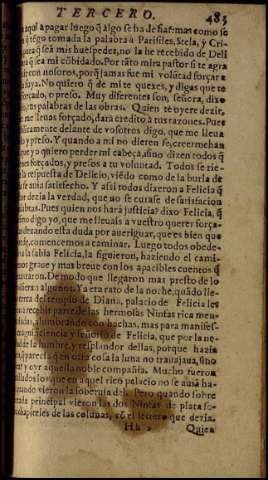 TERCERO. 483
aqui a pagar luego q̃ algo se ha de fiar: mas como se
q̃ tẽgo tomada la palabra à Parisiles, Stela, y Cri-
q̃ seã mis huespedes, no la he recebido de Deli
q̃ sea mi cõbidado. Por tãto mira pastor si te agra
nosotros, porq̃ jamas fue mi volũtad forçar a
suya. No quiero q̃ de mi te quexes, y digas que te
forçado, o preso. Muy diferentes son, señora, dixo
tus palabras de las obras. Quien te oyere dezir,
me lleuas forçado, darà credito à tus razones. Pues
delante de vosotros digo, que me lleua
y preso. Y quando a mi no dieren fe, creerme han
yo quiero perder mi cabeça, sino dizen todos q̃
forçados, y presos a tu voluntad. Todos se rie-
la respuesta de Delicio, viẽdo como de la burla de
satisfecho. Y assi todos dixeron a Felicia q̃
dezia la verdad, que no se curasse de satisfacion
Pues quien nos harà justicia? dixo Felicia, q̃
digo yo, que me lleuais a vuestro querer força-
esta duda por aueriguar, que es bien que
comencemos a caminar. Luego todos obede-
la sabia Felicia, la siguieron, haziendo el cami-
graue y mas breue con los apacibles cuentos q̃
De modo que llegaron mas presto de lo
a algunos. Ya era rato de la noche, quãdo lle-
del templo de Diana, palacio de Felicia les
a recebir parte de las hermosas Ninfas rica men-
alumbrando con hachas, mas para manifes-
y señorio de Felicia, que por la ne-
de la lumbre, y resplandor dellas, porque hazia
en otra cosa la luna no trauajaua, sino
y oyr aquella noble compañia. Mucho fueron
los que en aquel rico palacio no se auiã ha-
vieron la soberuia del. Pero quando sobre
principal vieron las dos Ninfas de plata so-
chapiteles de las colunas, cõ el letrero que dezia.
Hh 2 Quien